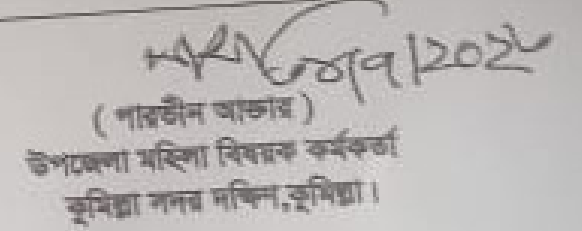 ( পারভীন আক্তার )
উপজেলা মহিলা বিষয়ক কর্মকর্তা
কুমিল্লা সদর দক্ষিন,কুমিল্লা।